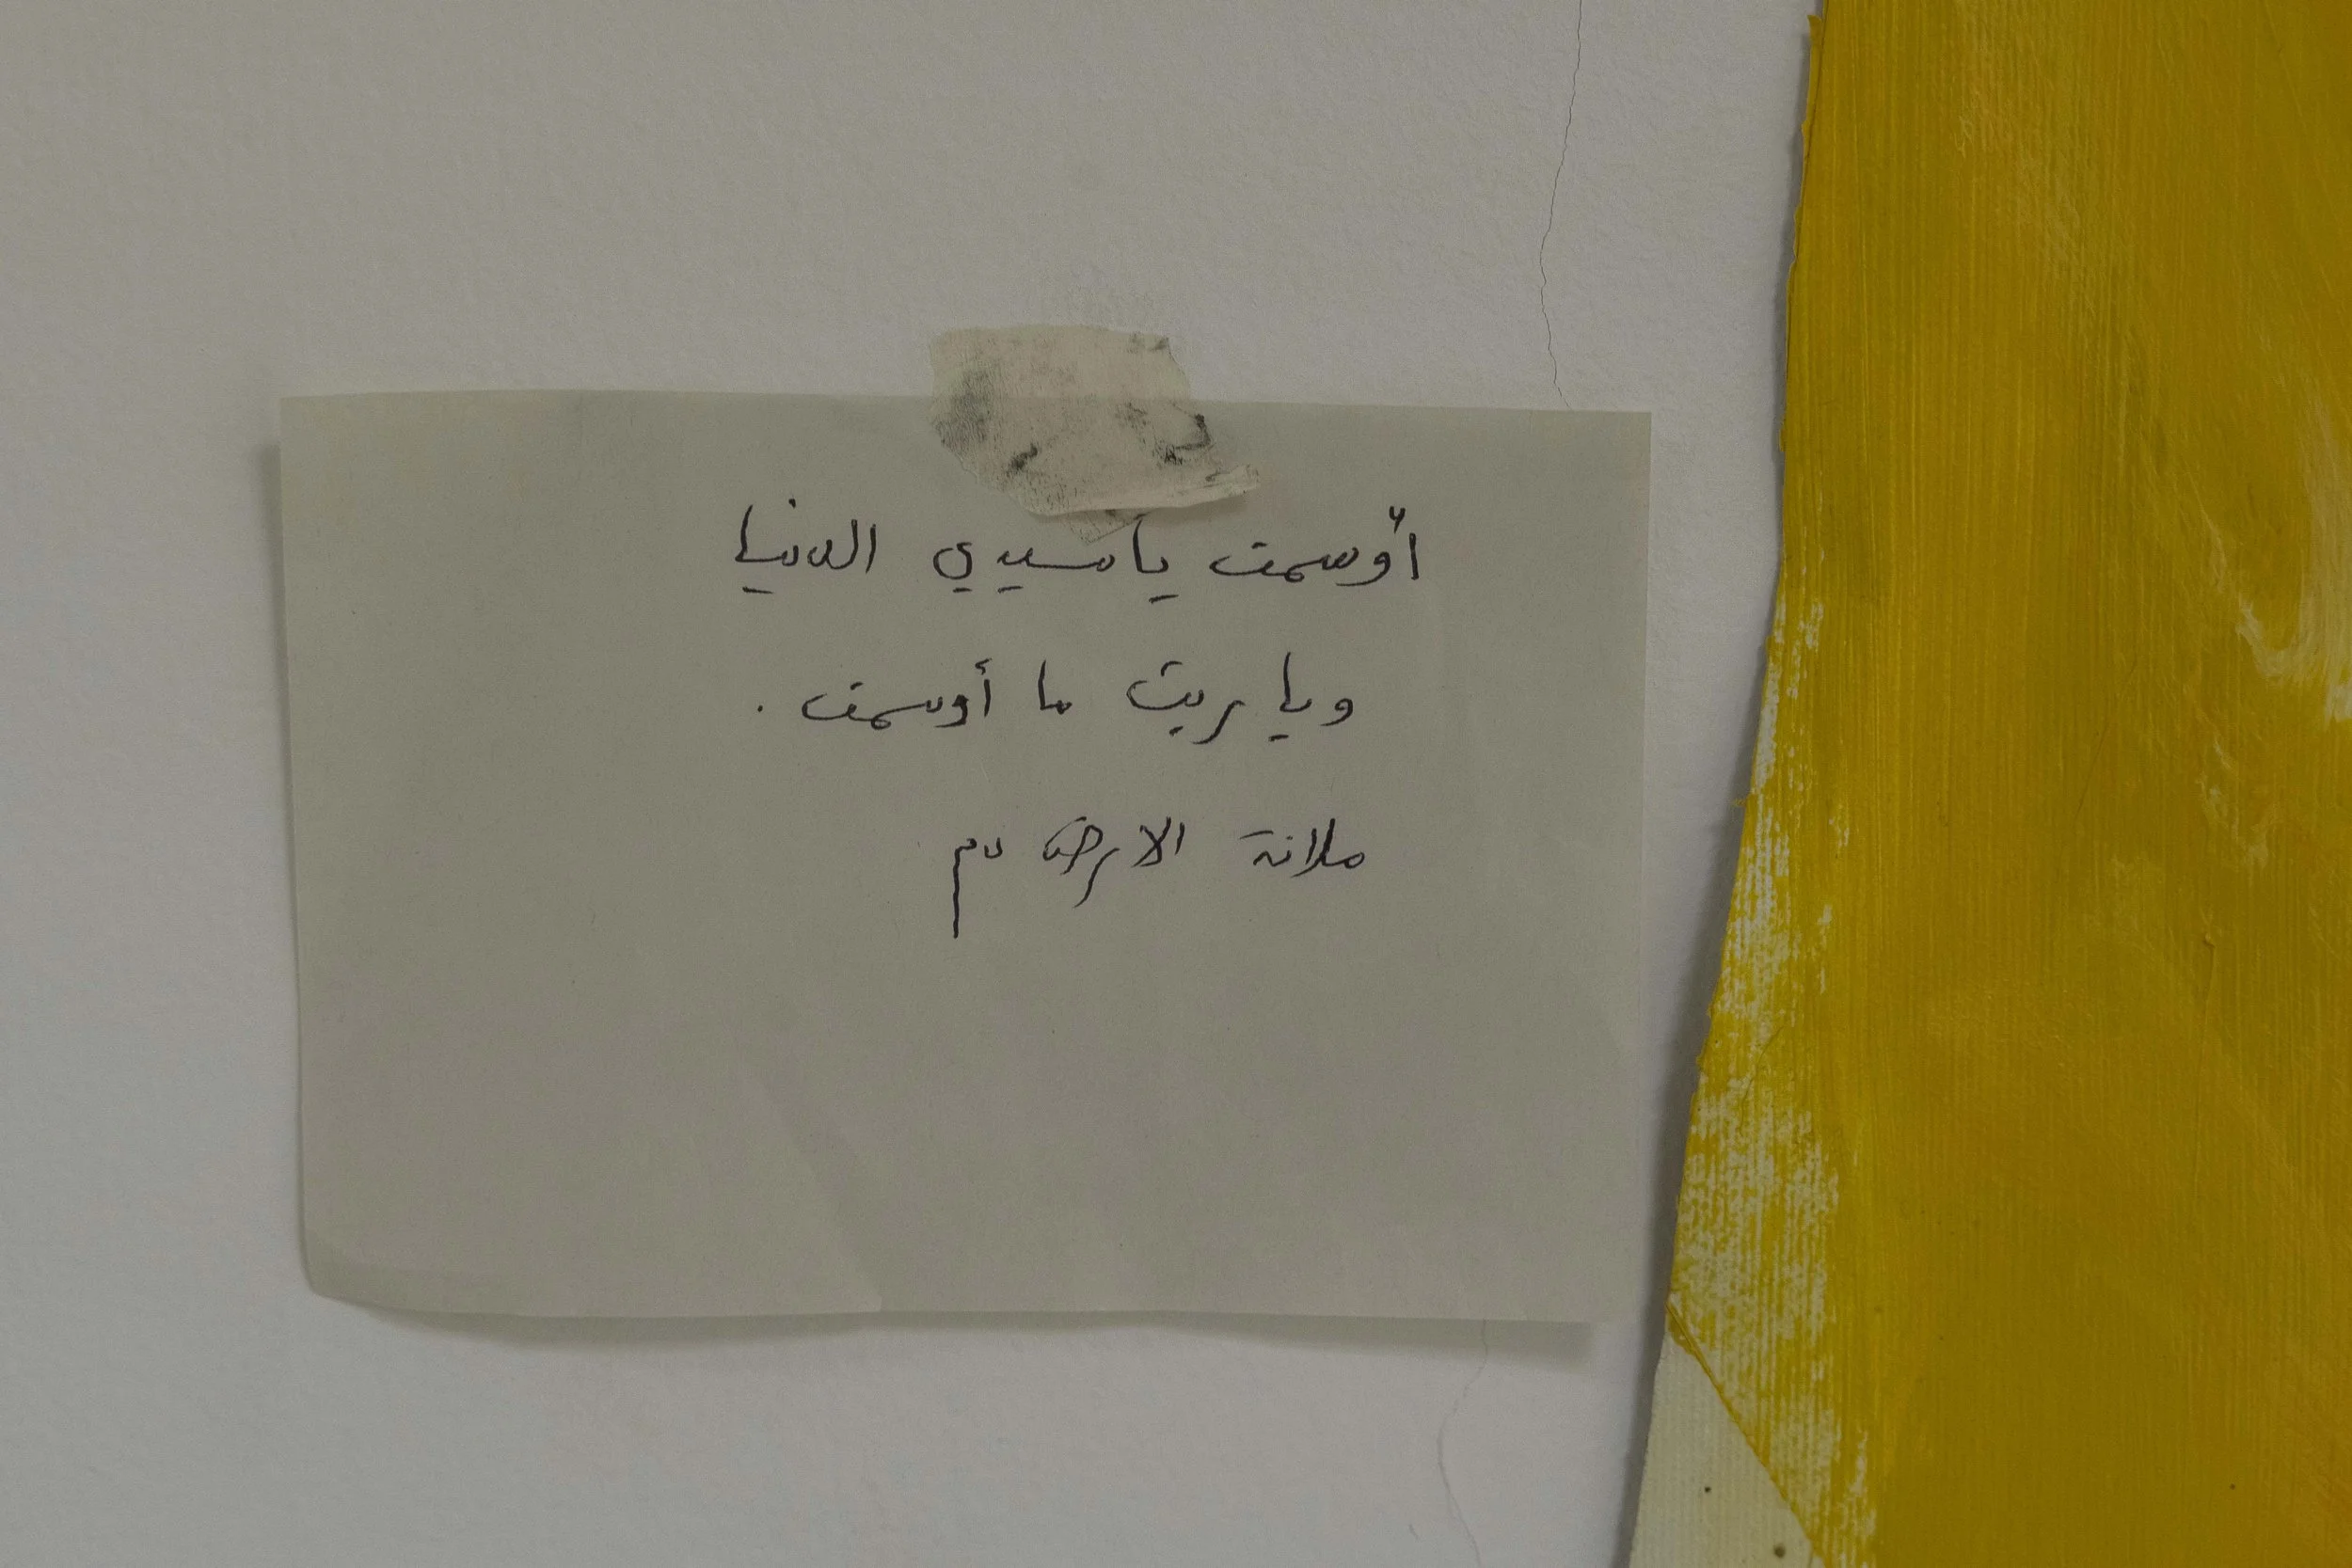 أوسمت ياسيدي الدنيا
ويا ريت ما أوسمت .
ملانة الارض دم